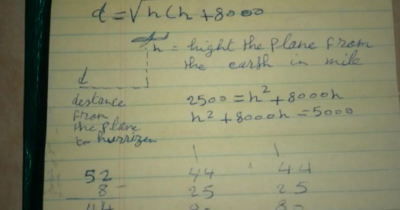 d = √h(h + 8000
h = hight the plane from
the earth in mile
d
distance
from
the plane
to hurrizen
2500 = h² + 8000h
h² + 8000h = 5000
1 1
52 44 44
8 25 25